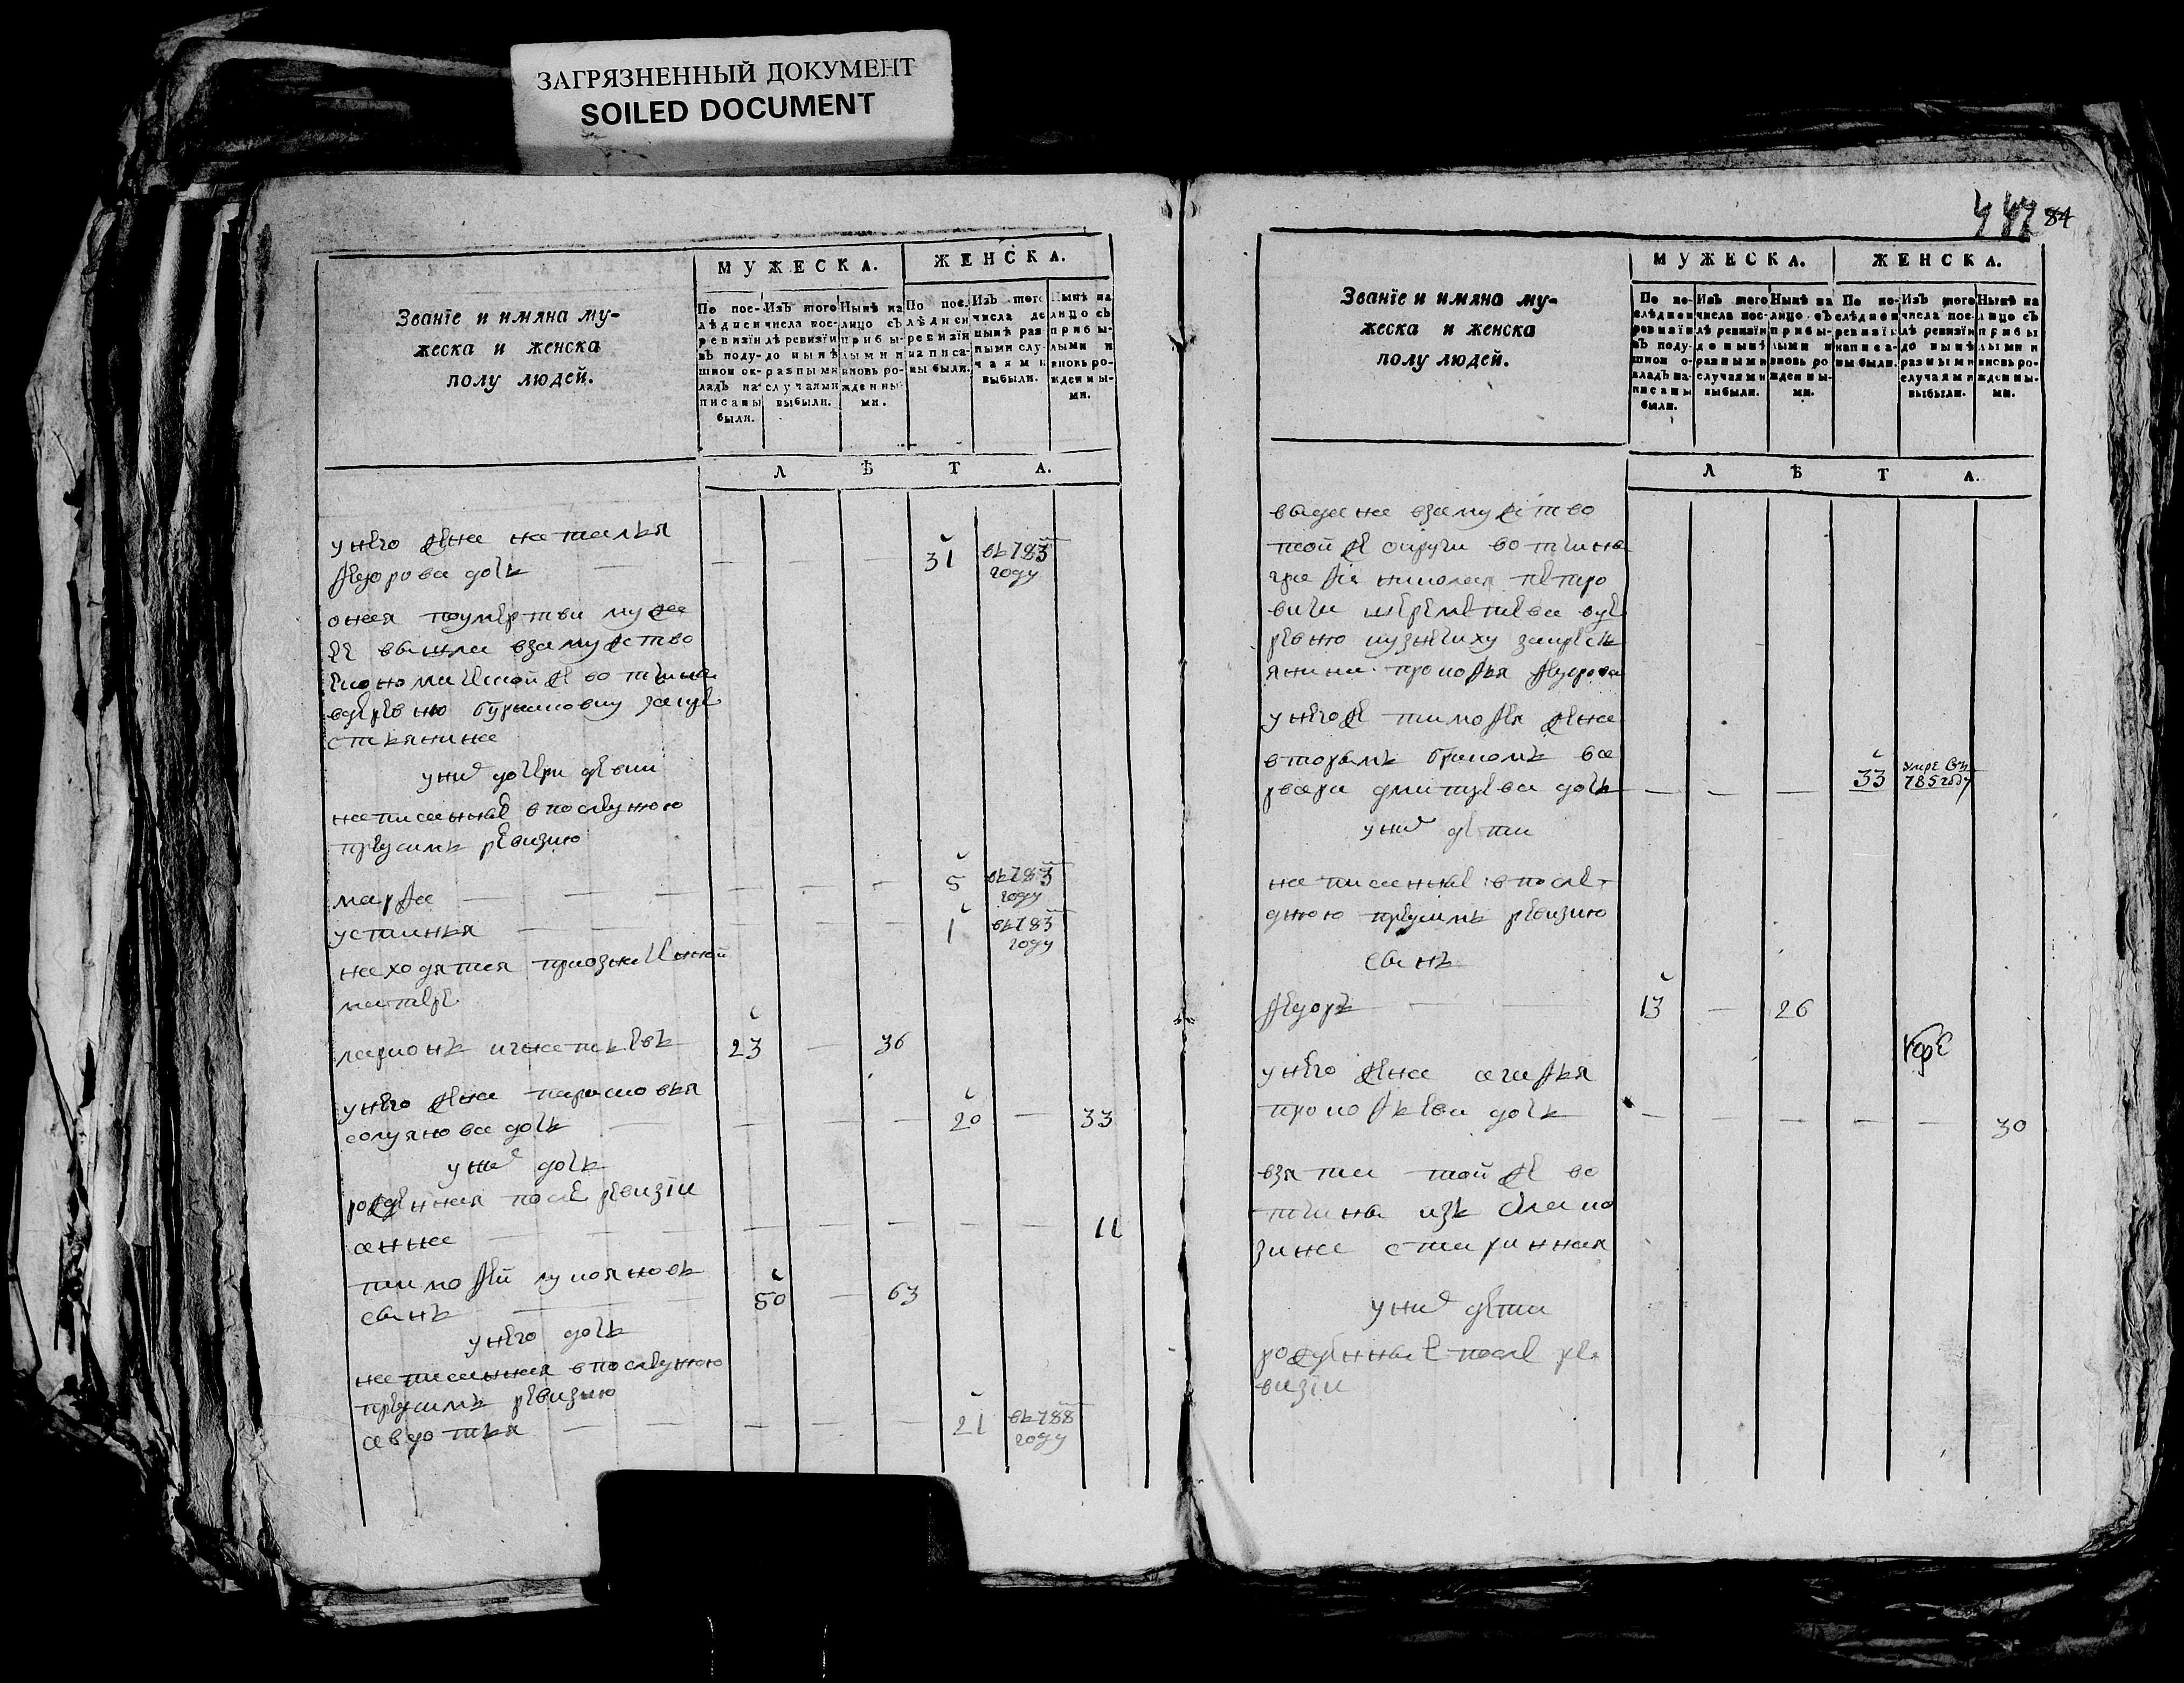 ЗАГРЯЗНЕННЫЙ ДОКУМЕНТ
SOILED DOCUMENT
Званїе и имяна му-
жеска и женска
полу людей.
МУЖЕСКА.
ЖЕНСКА.
По пос-
лѣдней
ревизїи
въ поду-
шном ок-
ладѣ на-
писаны
были.
Изъ того
числа пос-
лѣ ревизїи
до нынѣ
разными
случаями
выбыли.
Нынѣ на
лицо съ
прибы-
лыми и
вновь ро-
жденны-
ми.
По пос-
лѣдней
ревизїи
написа-
ны были.
Изъ того
числа до
нынѣ раз
ными слу
чаями
выбыли.
Нынѣ на
лицо съ
прибы-
лыми и
вновь ро-
жденны-
ми.
ЛѢТА.
у него жена наталья
федорова дочь — — — — 31 въ 783 году
оная посмерти мужа
ее вышла взамужство
вдеревню
у них дочери девки
написанные впоследнюю
пред симъ ревизию
марфа — — — — 5 въ 783 году
устинья — — — — 1 въ 783 году
находятся приозначенной
матере
ларионъ игнатьевъ 23 — 36
у него жена парасковья
дочь — — — — 20 — 33
у них дочь
рожденная после ревизїи
анна — — — — — — 11
тимофей лукояновъ
сынъ — 50 — 63
у него дочь
написанная впоследнюю
пред симъ ревизию
авдотья — — — — 21 въ 788 году
84
Званїе и имяна му-
жеска и женска
полу людей.
МУЖЕСКА.
ЖЕНСКА.
По по-
слѣдней
ревизїи
въ поду-
шном о-
кладѣ на-
писаны
были.
Изъ того
числа пос-
лѣ ревизїи
до нынѣ
разными
случаями
выбыли.
Нынѣ на
лицо съ
прибы-
лыми и
вновь ро
жденны-
ми.
По по-
слѣдней
ревизїи
написа-
ны были.
Изъ того
числа пос-
лѣ ревизїи
до нынѣ
разными
случаями
выбыли.
Нынѣ на
лицо съ
прибы
лыми и
вновь ро-
жденны-
ми.
ЛѢТА.
выдана взамужство
той же округи вотчины
графа николая петро
вича шереметева вде
ревню кузнечиху закресть
янина прокофья федорова
у него ж тимофея жена
вторымъ бракомъ ва
рвара дмитрева дочь — — — 33 умре в 785 году
у них дети
написанные впослед
днюю пред симъ ревизию
сынъ
федоръ — — 13 — 26
у него жена агафья
прокофьева дочь — — — — — 30
взята той же во
тчины изъ села ко
зина старинная
у них дети
рожденные после ре
визїи